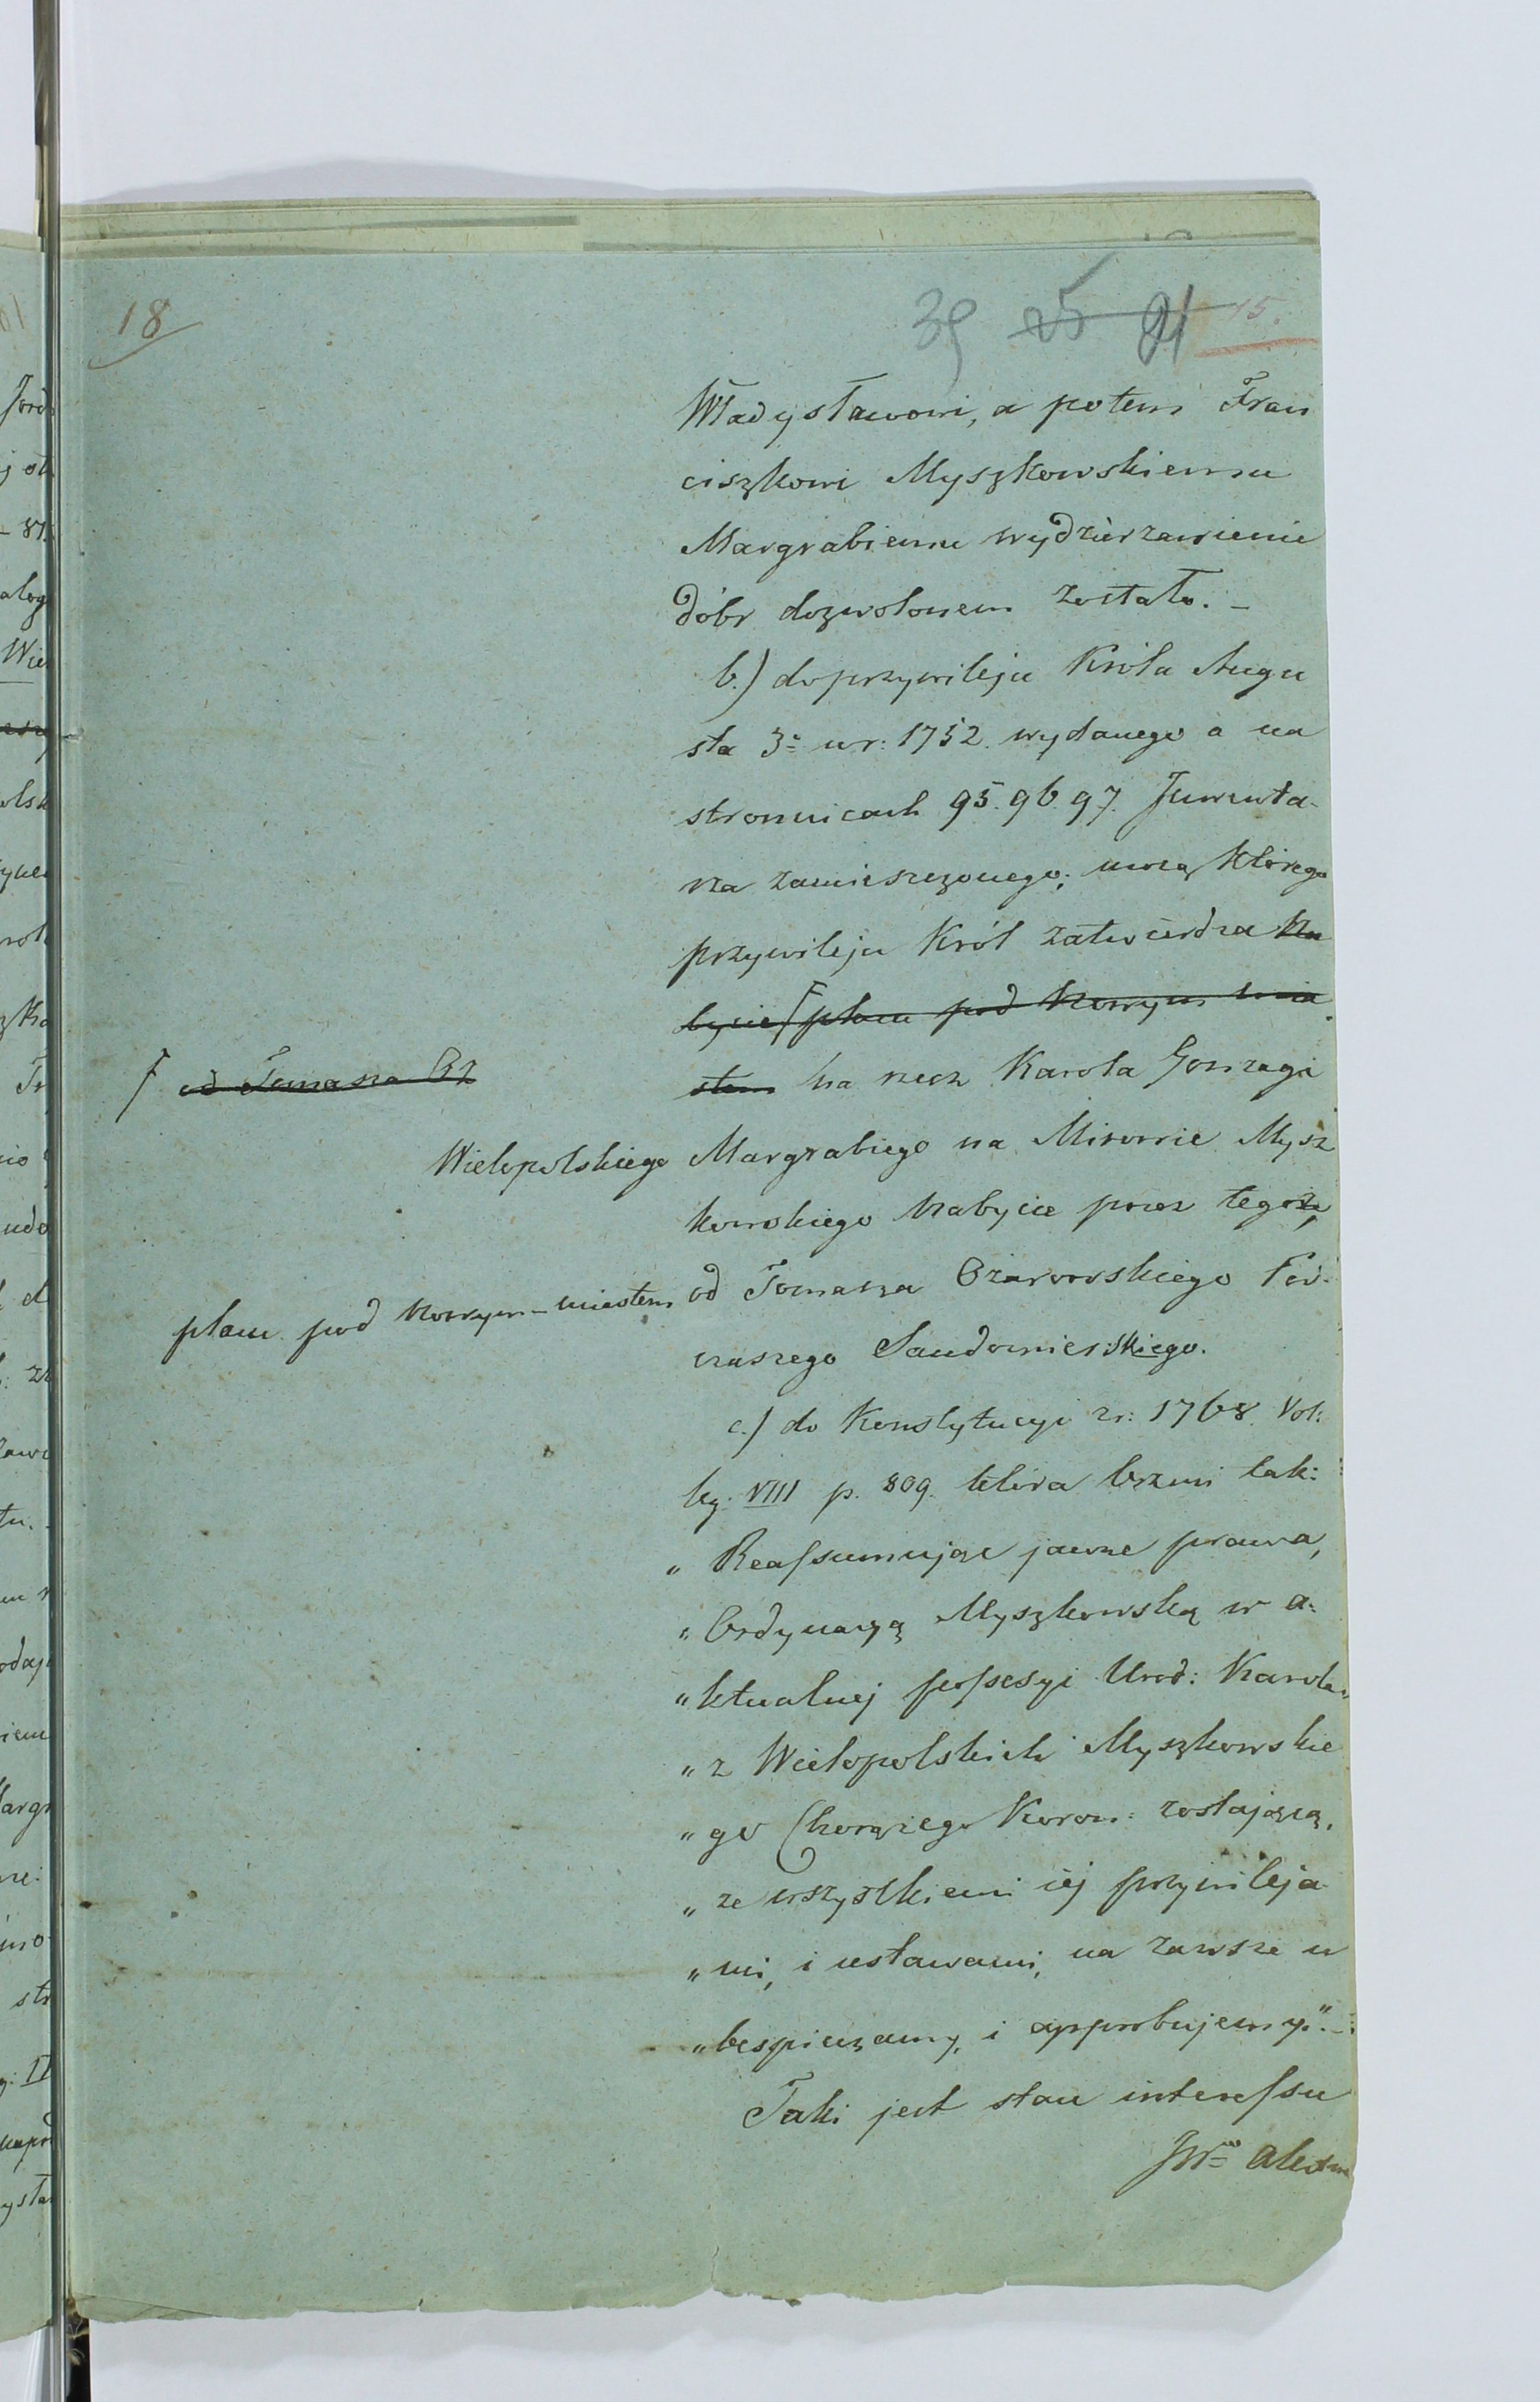 18
39 25 21 15.
Władysławowi, a potem Fran
ciszkowi Myszkowskiemu
Margrabiemu wydzierzawienie
dóbr dozwolonem zostało. -
b.) do przywileju Króla Augu
sta 3º w r: 1752. wydanego a na
stronnicach 95. 96. 97. Inwenta-
rza zamieszczonego; mocą którego
przywileju Król zatwierdza na
bycie placu pod Nowym mia
stem na rzecz Karola Gonzagi
od Tomasza Oż
Wielopolskiego Margrabiego na Mirowie Mysz
kowskiego nabycie przez tegoż,
plac pod Nowym-miastem od Tomasza Ożarowskiego Pod-
czaszego Sandomierskiego.
c.) do Konstytucyi z r: 1768. Vol:
leg: VIII p. 809. która brzmi tak:
„ Reassumując jawne prawa,
„ Ordynacyą Myszkowską w a-
„ ktualnej possesyi Urod: Karola
„ z Wielopolskich Myszkowskie
„ go Chorążego Koron: zostającą,
„ ze wszystkiemi iéj przywileja
„ mi, i ustawami, na zawsze u
„ bespieczamy, i approbujemy." -
Taki jest stan interessu
JWº